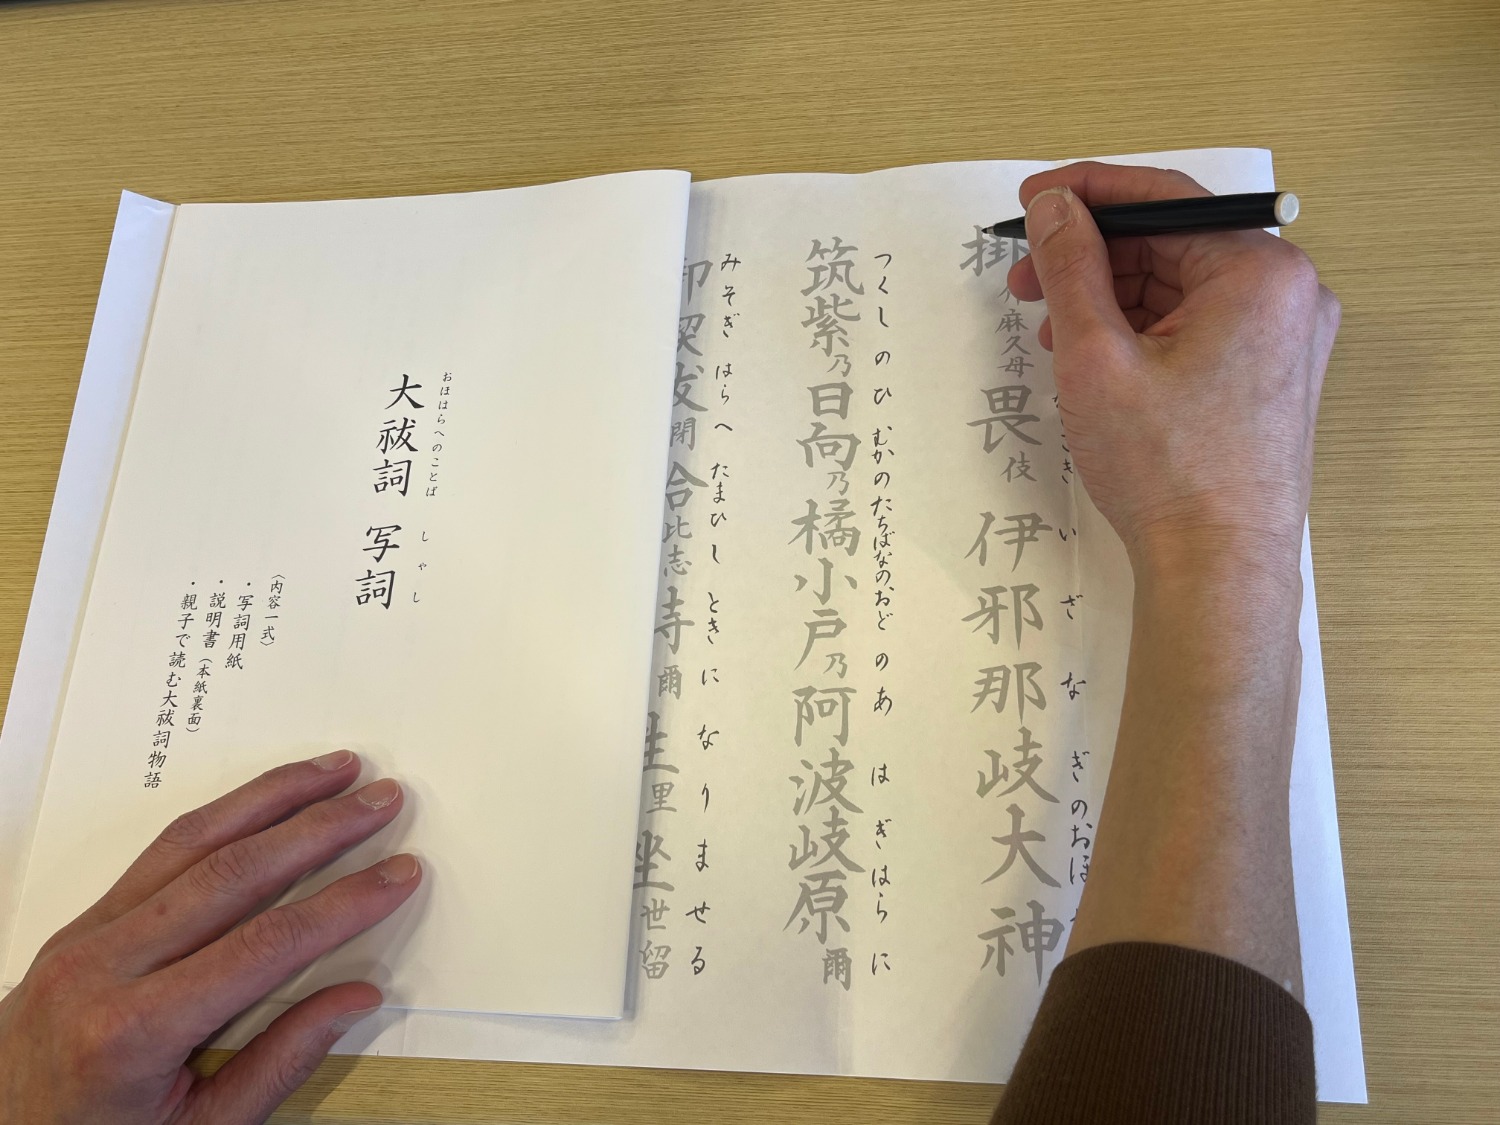 掛介麻久母畏伎伊邪那岐大神
きいざなぎのおほ
筑紫乃日向乃橘小戸乃阿波岐原爾
つくしのひむかのたちばなのおどのあはぎはらに
閉合比志時爾生里坐世留
みそぎはらへたまひしときになりませる
おほはらへのことばしゃし
大祓詞写詞
〈内容一式〉
・写詞用紙
・説明書（本紙裏面）
・親子で読む大祓詞物語